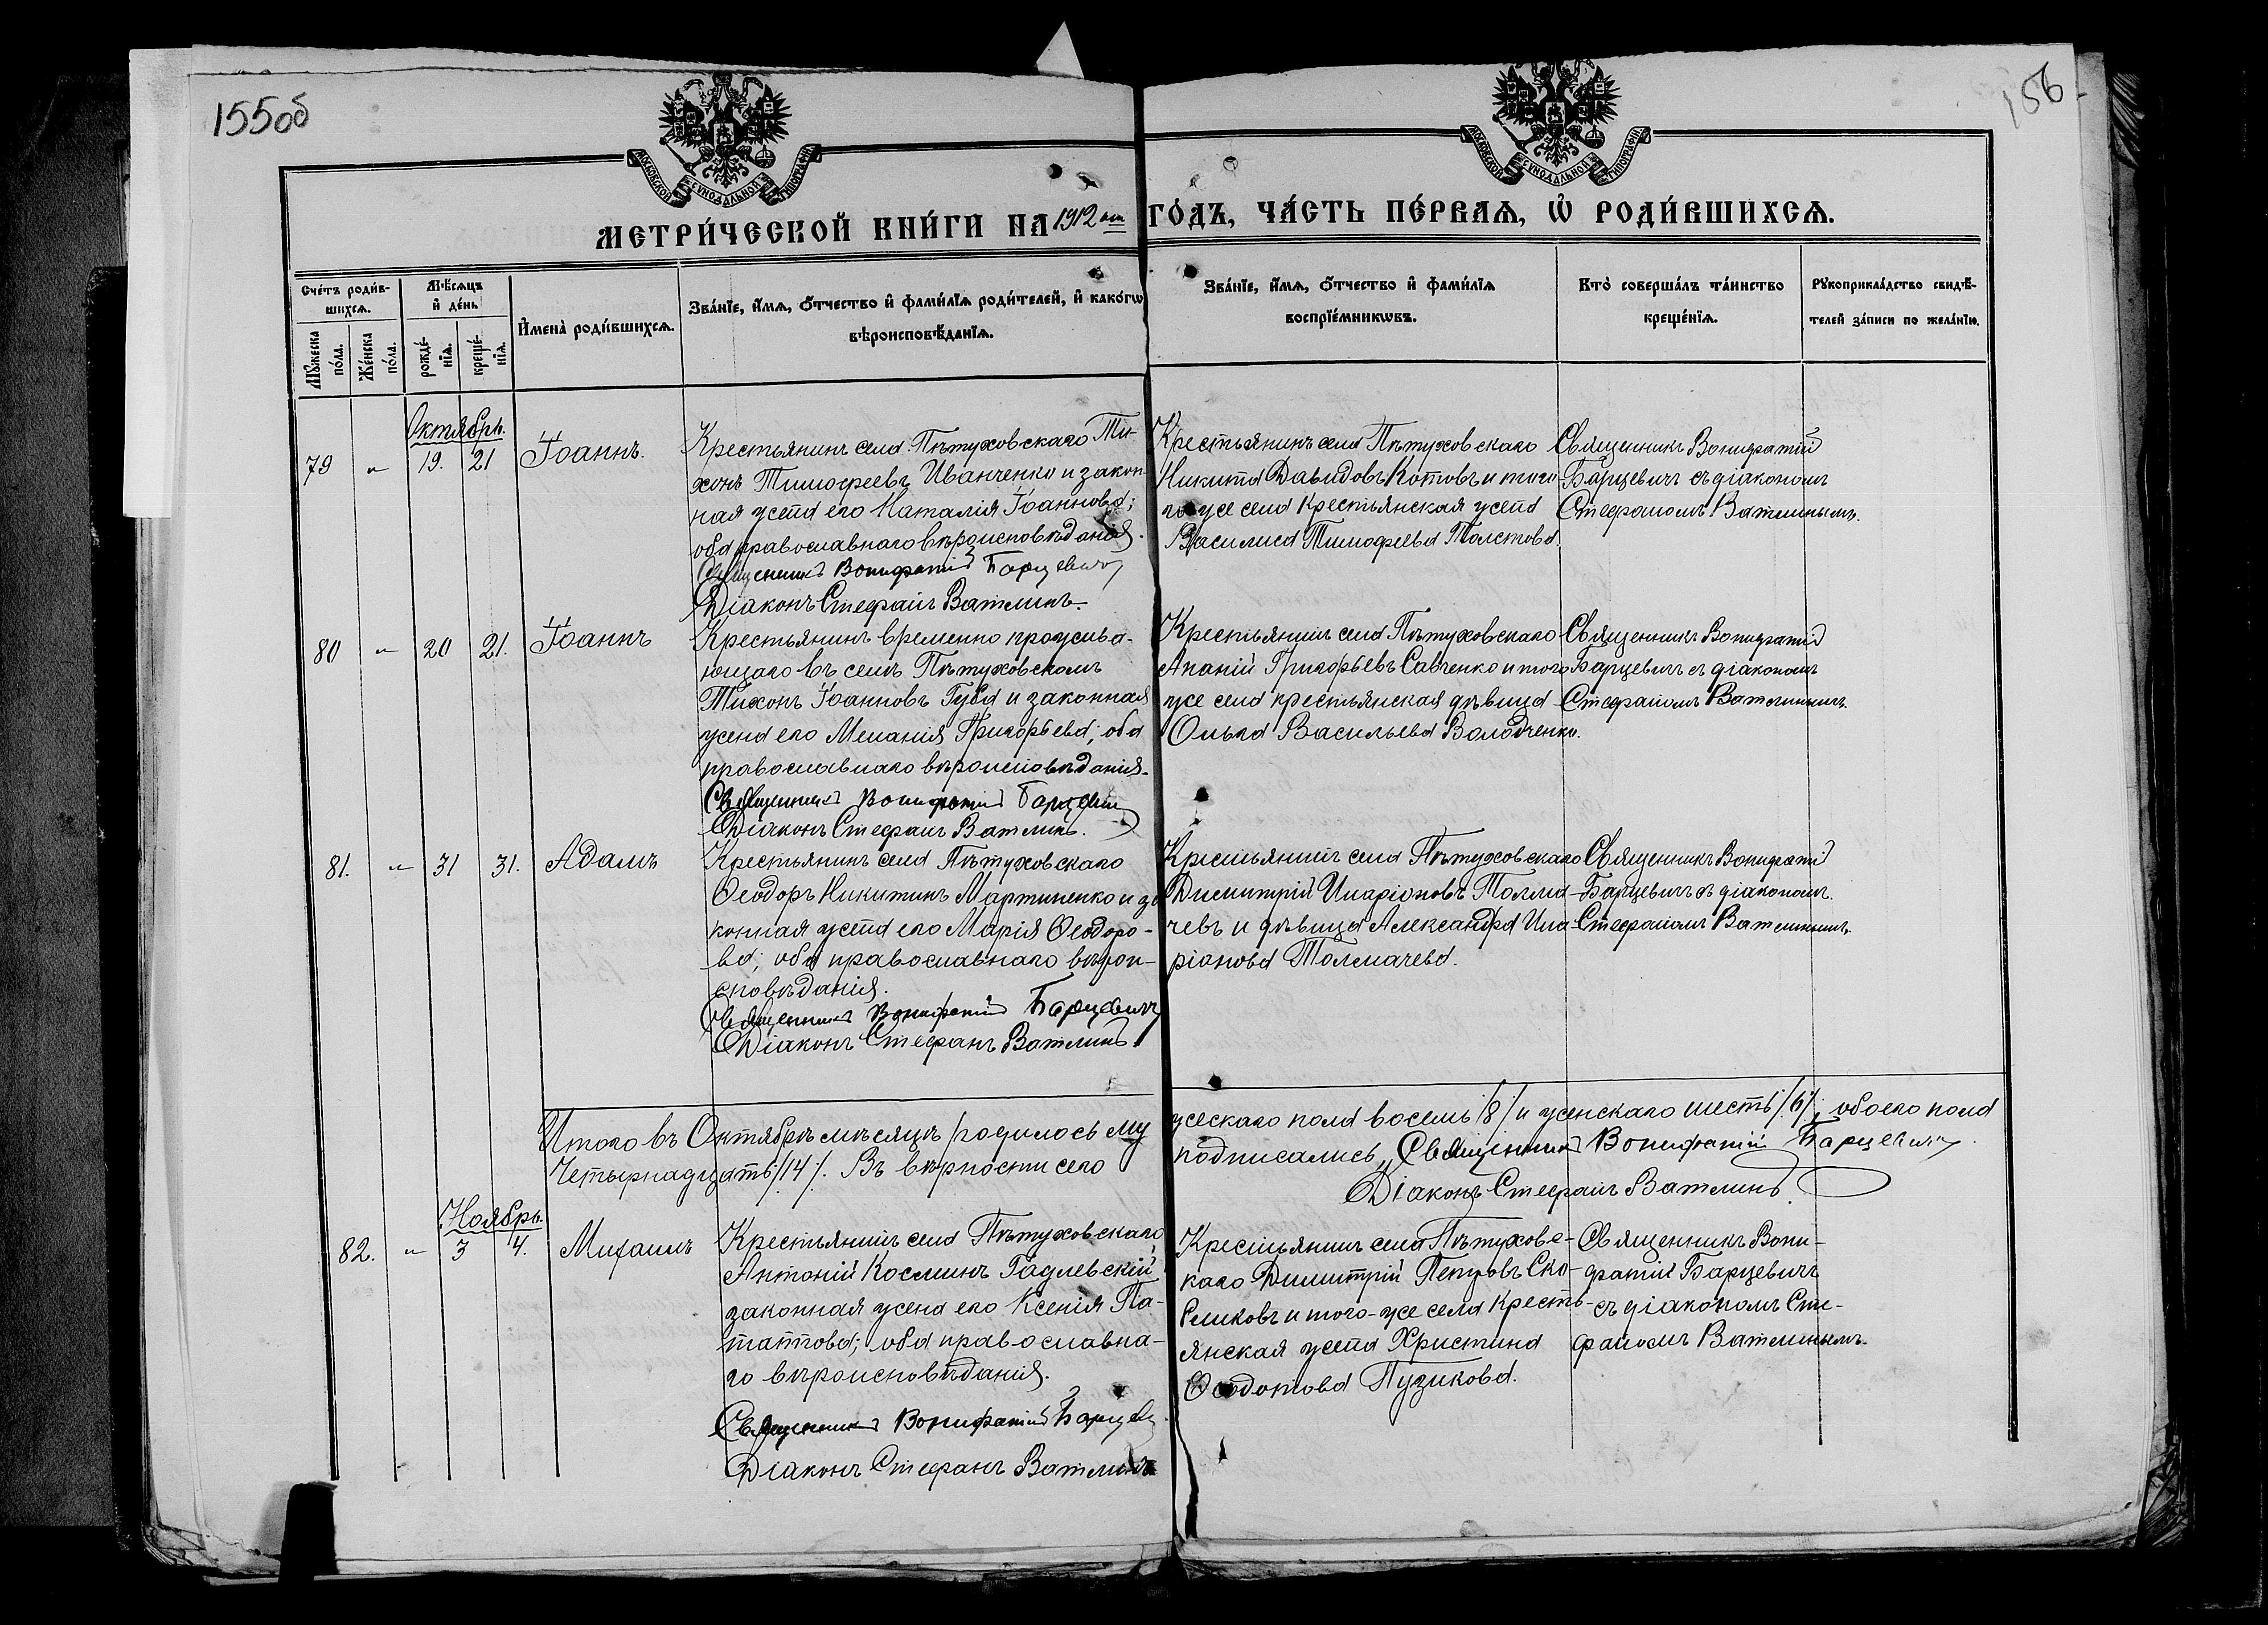 155об
156
МОСКОВСКОЙ СѴНОДАЛЬНОЙ ТИПОГРАФІИ
МОСКОВСКОЙ СѴНОДАЛЬНОЙ ТИПОГРАФІИ
МЕТРИ́ЧЕСКОЙ КНИ́ГИ НА 1912 ый ГО́ДЪ, ЧА́СТЬ ПЕ́РВАѦ, Ѡ҆ РОДИ́ВШИХСѦ.
Сче́тъ роди́в-
шихсѧ.
Мꙋ́жеска по́ла.
Же́нска по́ла.
Мѣ́сѧцъ
и҆ де́нь
рожде́-
нїѧ.
креще́-
нїѧ.
И҆мена̀ роди́вшихсѧ.
Зва́нїе, и҆́мѧ, ѻ҆́тчество и҆ фами́лїѧ роди́телей, и҆ како́гѡ
вѣроисповѣ́данїѧ.
Зва́нїе, и҆́мѧ, ѻ҆́тчество и҆ фами́лїѧ
воспрїе́мникѡвъ.
Кто̀ соверша́лъ та́инство
креще́нїѧ.
Рꙋкоприкла́дство свидѣ́-
телей за́писи по жела́нїю.
Октябрь.
79 „ 19. 21 Іоаннъ.
Крестьянинъ села Пѣтуховскаго Ти-
хонъ Тимофеевъ Иванченко и закон-
ная жена его Наталія Іоаннова;
оба православнаго вѣроисповѣданія.
Священникъ Вонифатій Барцевичъ
Діаконъ Стефанъ Ватлинъ.
Крестьянинъ села Пѣтуховскаго
Никита Давидовъ Котовъ и того-
же села крестьянская жена
Василиса Тимофеева Толстова.
Священникъ Вонифатій
Барцевичъ съ діакономъ
Стефаномъ Ватлинымъ.
80 „ 20 21. Іоаннъ
Крестьянинъ временно прожива-
ющаго въ селѣ Пѣтуховскомъ
Тихонъ Іоанновъ Губа и законная
жена его Меланія Григорьева; оба
православнаго вѣроисповѣданія.
Священникъ Вонифатій Барцевичъ
Діаконъ Стефанъ Ватлинъ.
Крестьянинъ села Пѣтуховскаго
Ананій Григорьевъ Савченко и того
же села крестьянская дѣвица
Ольга Васильева Володченко.
Священникъ Вонифатій
Барцевичъ съ діакономъ
Стефаномъ Ватлинымъ.
81. „ 31 31. Адамъ
Крестьянинъ села Пѣтуховскаго
Ѳеодоръ Никитинъ Мартиненко и за
конная жена его Марія Ѳеодоро-
ва; оба православнаго вѣрои-
сповѣданія.
Священникъ Вонифатій Барцевичъ
Діаконъ Стефанъ Ватлинъ
Крестьянинъ села Пѣтуховскаго
Димитрій Иларіоновъ Толма-
чевъ и дѣвица Александра Ила-
ріонова Толмачева.
Священникъ Вонифатій
Барцевичъ съ діакономъ
Стефаномъ Ватлинымъ.
Итого въ Октябрѣ мѣсяцѣ родилось му
жескаго пола восемь /8/ и женскаго шесть /6/; обоего пола
Четырнадцать /14/. Въ вѣрности сего
подписались, Священникъ Вонифатій Барцевичъ.
Діаконъ Стефанъ Ватлинъ.
Ноябрь.
82. „ 3 4. Михаилъ
Крестьянинъ села Пѣтуховскаго
Антоній Косминъ Гадлевскій
законная жена его Ксенія По-
тапова; оба православна-
го вѣроисповѣданія.
Священникъ Вонифатій Барцевичъ
Діаконъ Стефанъ Ватлинъ
Крестьянинъ села Пѣтуховс-
каго Димитрій Петровъ Ско-
беликовъ и того-же села кресть-
янская жена Христина
Ѳеодотова Пузикова.
Священникъ Вони-
фатій Барцевичъ
съ діакономъ Сте-
фаномъ Ватлинымъ.